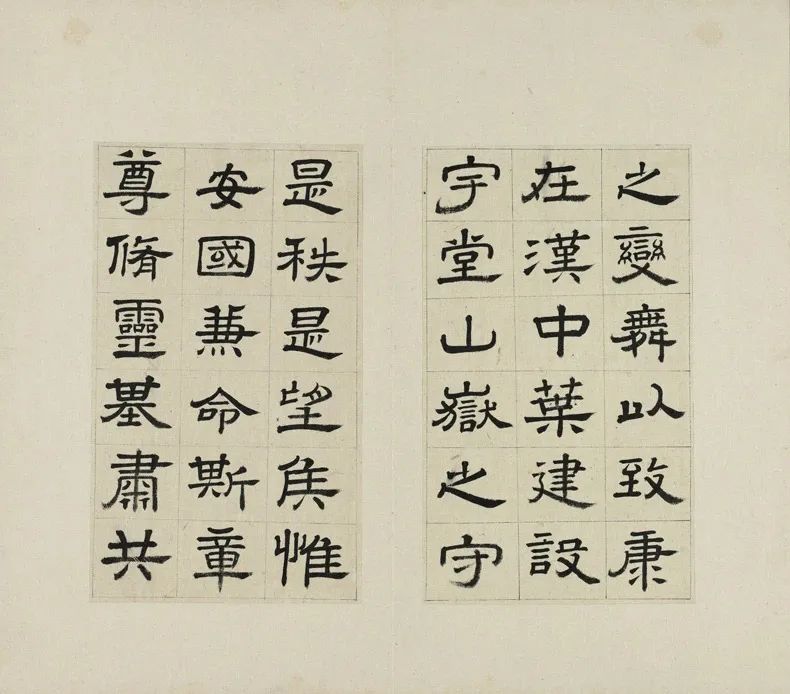 之變舞以致康
在漢中葉建設
宇堂山嶽之守
是秩是望侯惟
安國兼命斯章
尊脩靈基肅共